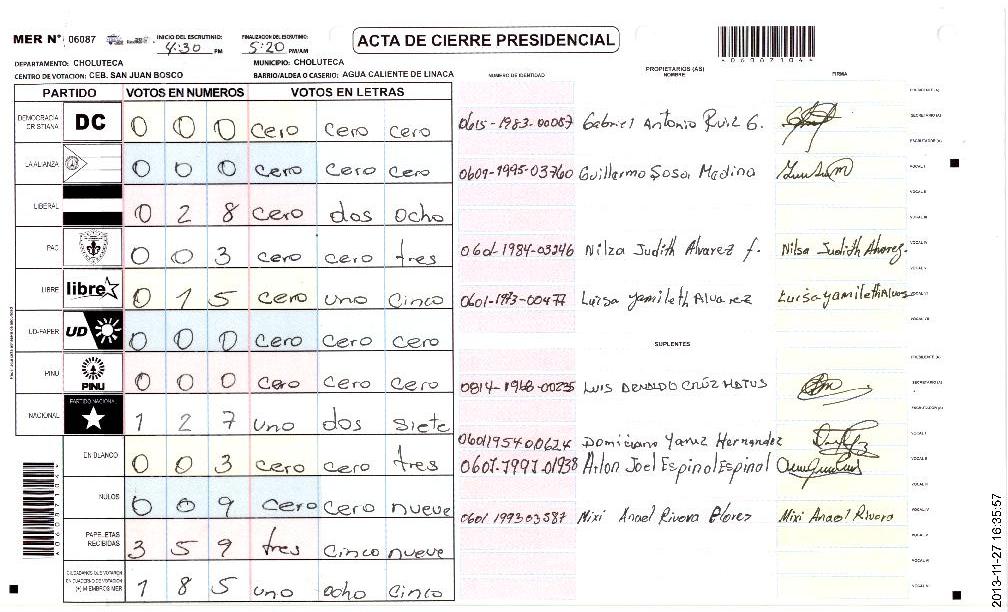 MER N° 06087 INICIO DEL ESCRUTINIO: 4:30 PM FINALIZACION DEL ESCRUTINIO: 5:20 PM/AM ACTA DE CIERRE PRESIDENCIAL
*060871044*
DEPARTAMENTO: CHOLUTECA MUNICIPIO: CHOLUTECA
CENTRO DE VOTACION: CEB. SAN JUAN BOSCO BARRIO/ALDEA O CASERIO: AGUA CALIENTE DE LINACA
PARTIDO VOTOS EN NUMEROS VOTOS EN LETRAS
DEMOCRACIA CRISTIANA DC 0 0 0 cero cero cero
LA ALIANZA 0 0 0 cero cero cero
LIBERAL 0 2 8 cero dos ocho
PAC 0 0 3 cero cero tres
LIBRE libre 0 1 5 cero uno cinco
UD-FAPER UD 0 0 0 cero cero cero
PINU PINU 0 0 0 cero cero cero
NACIONAL PARTIDO NACIONAL 1 2 7 uno dos siete
EN BLANCO 0 0 3 cero cero tres
NULOS 0 0 9 cero cero nueve
PAPELETAS RECIBIDAS 3 5 9 tres cinco nueve
CIUDADANOS QUE VOTARON EN CUADERNO DE VOTACION (+) MIEMBROS MER 1 8 5 uno ocho cinco
PROPIETARIOS (AS)
NUMERO DE IDENTIDAD NOMBRE FIRMA
PRESIDENTE (A)
0615-1983-00087 Gabriel Antonio Ruiz G. SECRETARIO (A)
ESCRUTADOR (A)
0609-1995-03760 Guillermo Sosa Medina VOCAL I
VOCAL II
VOCAL III
0601-1984-03246 Nilza Judith Alvarez f. Nilsa Judith Alvarez. VOCAL IV
VOCAL V
0601-1973-00477 Luisa Yamileth Alvarez Luisa yamileth Alvares VOCAL VI
VOCAL VII
SUPLENTES
PRESIDENTE (A)
0814-1968-00235 LUIS ARNALDO CRUZ MATUS SECRETARIO (A)
ESCRUTADOR (A)
0601195400624 Domiciano Yanez Hernandez VOCAL I
0607-1997-01938 Arlon Joel Espinol Espinol VOCAL II
VOCAL III
0601 199303587 Mixi Anael Rivera Florez Mixi Anael Rivera VOCAL IV
VOCAL V
VOCAL VI
VOCAL VII
*060871044*
2013-11-27 16:35:57